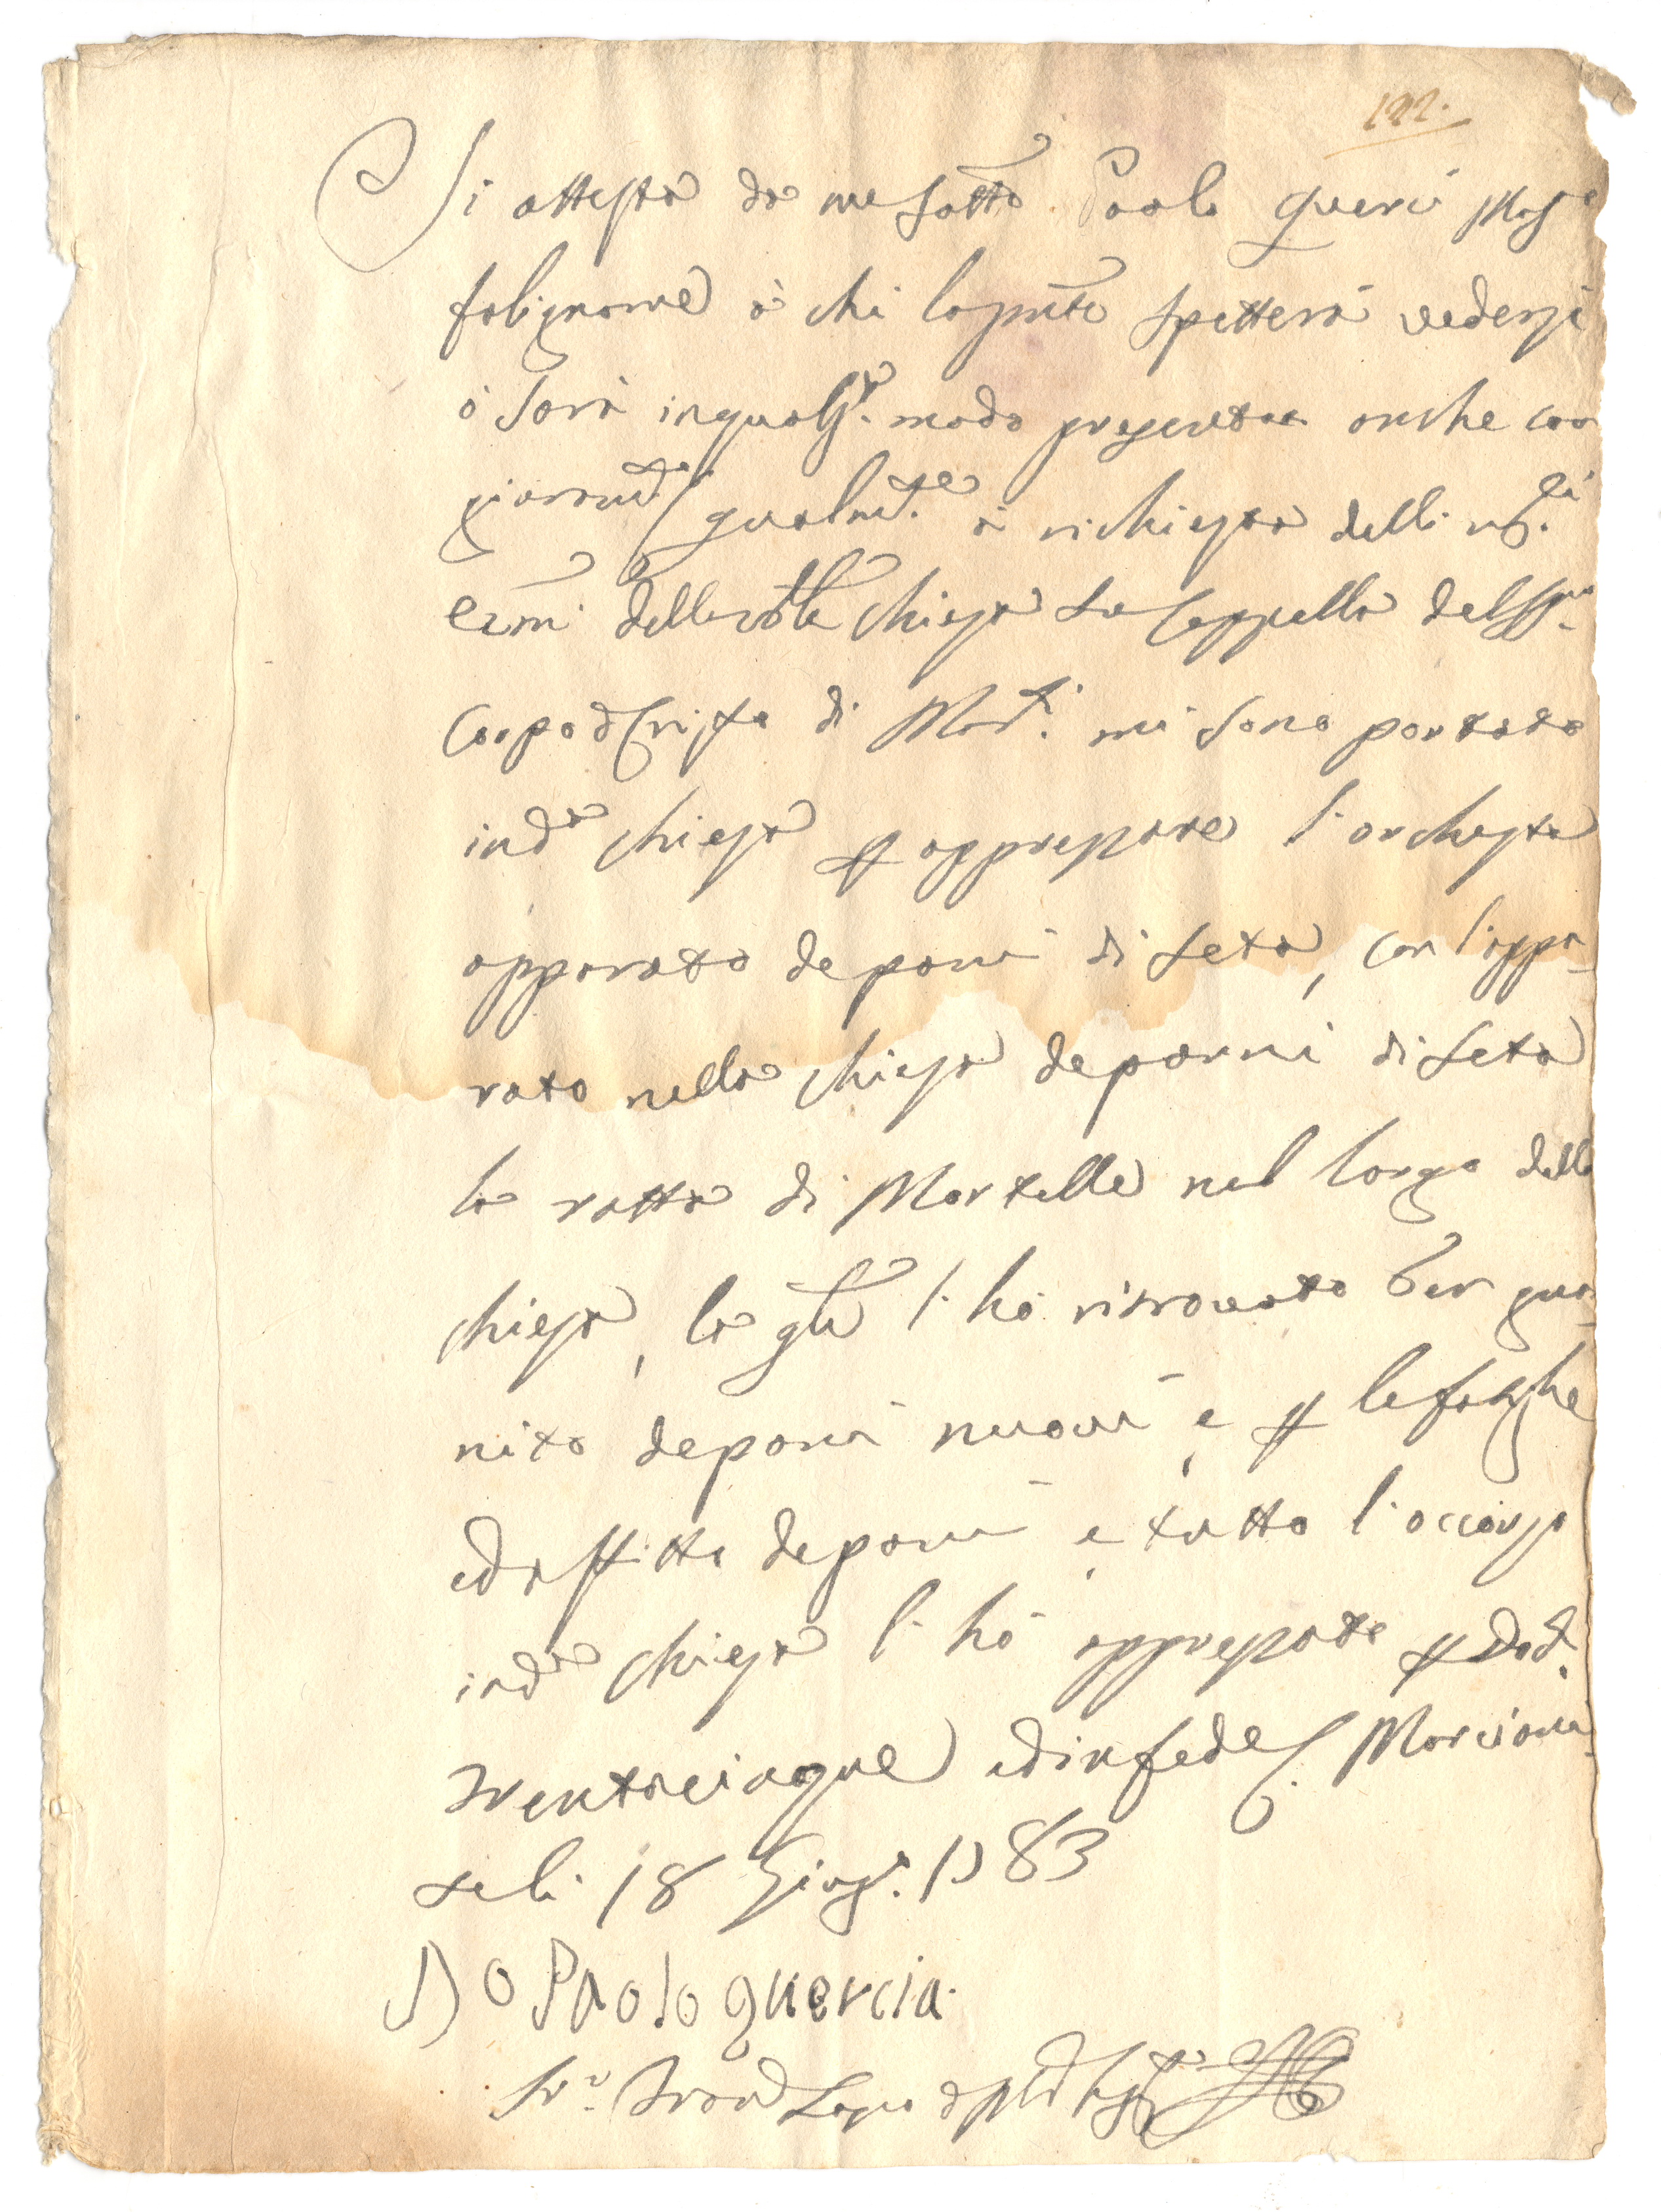 122.
Si attesta da me sottõ Paolo Querci Mast.
falignome à chi la pñte spetterà vedersi
ò sarà in quals.ª modo presentata anche con
giuram.to qualm.te à richiesta delli
della chiesa Cappella del SS.mo
Corpo d Cristo di Mart. mi sono portato
in d.ª chiesa p apprepare l'orchesta
apparato de pani di seta, con l'appa-
rato nella chiesa de panni di seta
la ratta di Mortelle nel largo della
chiesa, la qle l'hò ritrovata ben gua-
nita de pani nuovi, e p le fatighe
ed affitto de pani e tutto l'occorso
in d.ª chiesa l'hò apprepato p Doc.
trentacinque ed in fede Marciana-
se li 18 Giug.º 1783
Io Paolo quercia